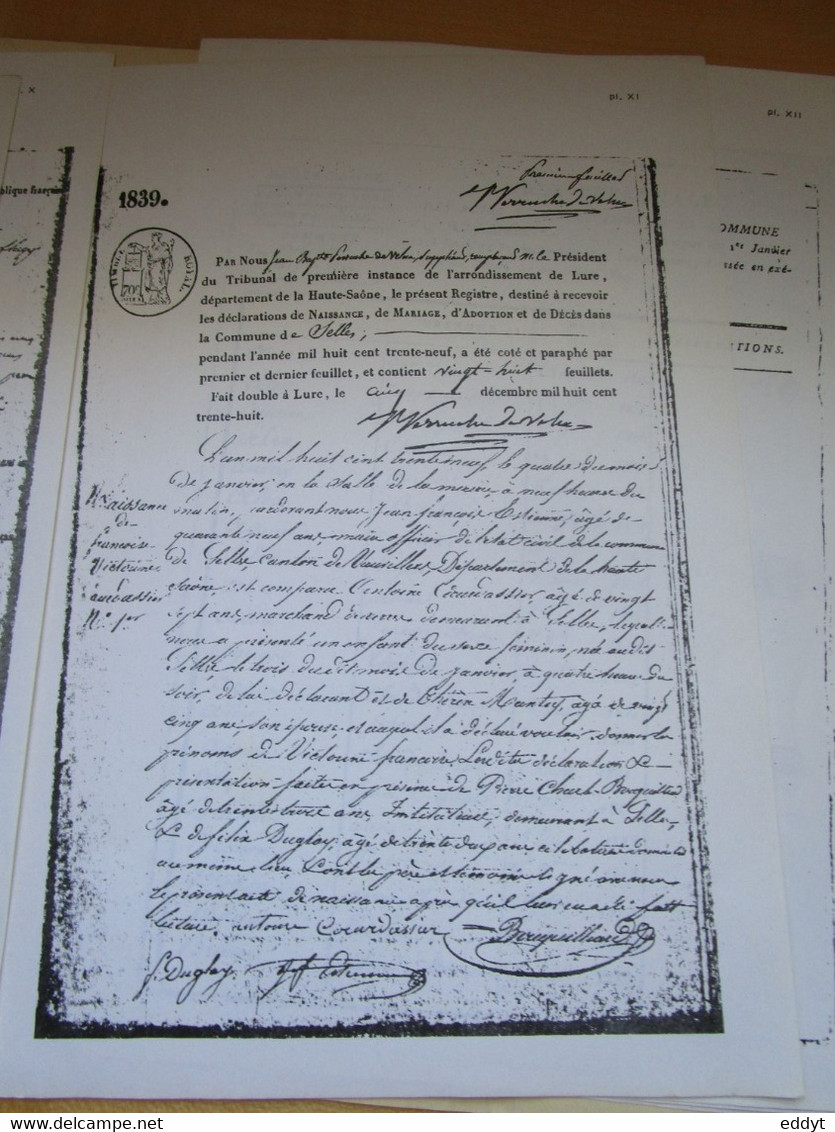 X
pl. XI
pl. XII
blique français
1839.
Premier feuillet
TIMBRE ROYAL
PAR NOUS Jean Bapte Perruche de Velna, suppléant, remplaçant M. le Président
du Tribunal de première instance de l'arrondissement de Lure,
département de la Haute-Saône, le présent Registre, destiné à recevoir
les déclarations de NAISSANCE, de MARIAGE, d'ADOPTION et de DÉCÈS dans
la Commune de Selles,
pendant l'année mil huit cent trente-neuf, a été coté et paraphé par
premier et dernier feuillet, et contient vingt-huit feuillets.
Fait double à Lure, le cinq décembre mil huit cent
trente-huit.
L'an mil huit cent trente neuf, le quatre du mois
de janvier, en la salle de la mairie, à neuf heures du
matin, pardevant nous Jean françois Etienne, âgé de
quarante neuf ans, maire officier de l'état civil de la commune
de Selles Canton de Vauvillers, Département de la haute
Saône est comparu Antoine Courdassier, âgé de vingt
sept ans, marchand de verre demeurant à Selles, lequel
nous a présenté un enfant du sexe féminin, née audit
Selles, le trois du dit mois de janvier, à quatre heures du
soir, de lui déclarant et de Thérèse Mantey, âgé de vingt
cinq ans, son épouse et auquel il a déclaré vouloir donner les
prénoms de Victorine françoise. Les dites déclaration &
présentation faites en présence de Pierre Charl. Bouquillard
âgé de trente trois ans, Instituteur, demeurant à Selles,
& de félix Duglay, âgé de trente
au même lieu. Et ont les père et témoins signé avec nous
le présent acte de naissance après qu'il leur en a été fait
lecture. antoine Courdassier Bouquillard
f. Duglay jf Etienne
Naissance
de
francoise
Victorine
Courdassier
N.o 1er
OMMUNE
1er Janvier
ssée en exé-
TIONS.
eddyt